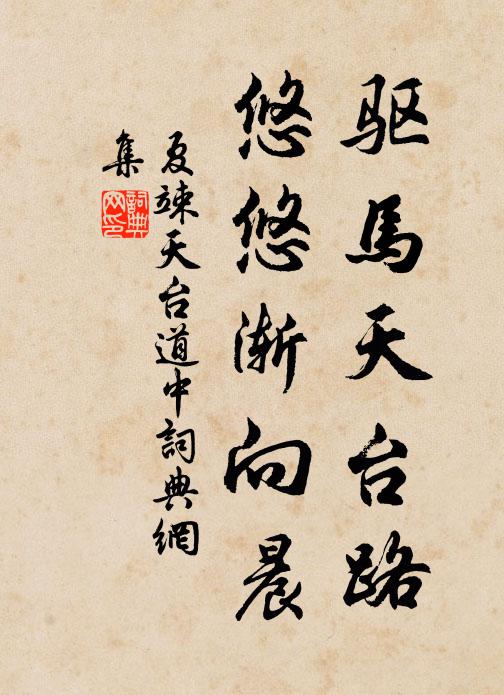 驱馬天台路
悠悠漸向晨
夏竦天台道中詞典網
集
詞典
网印